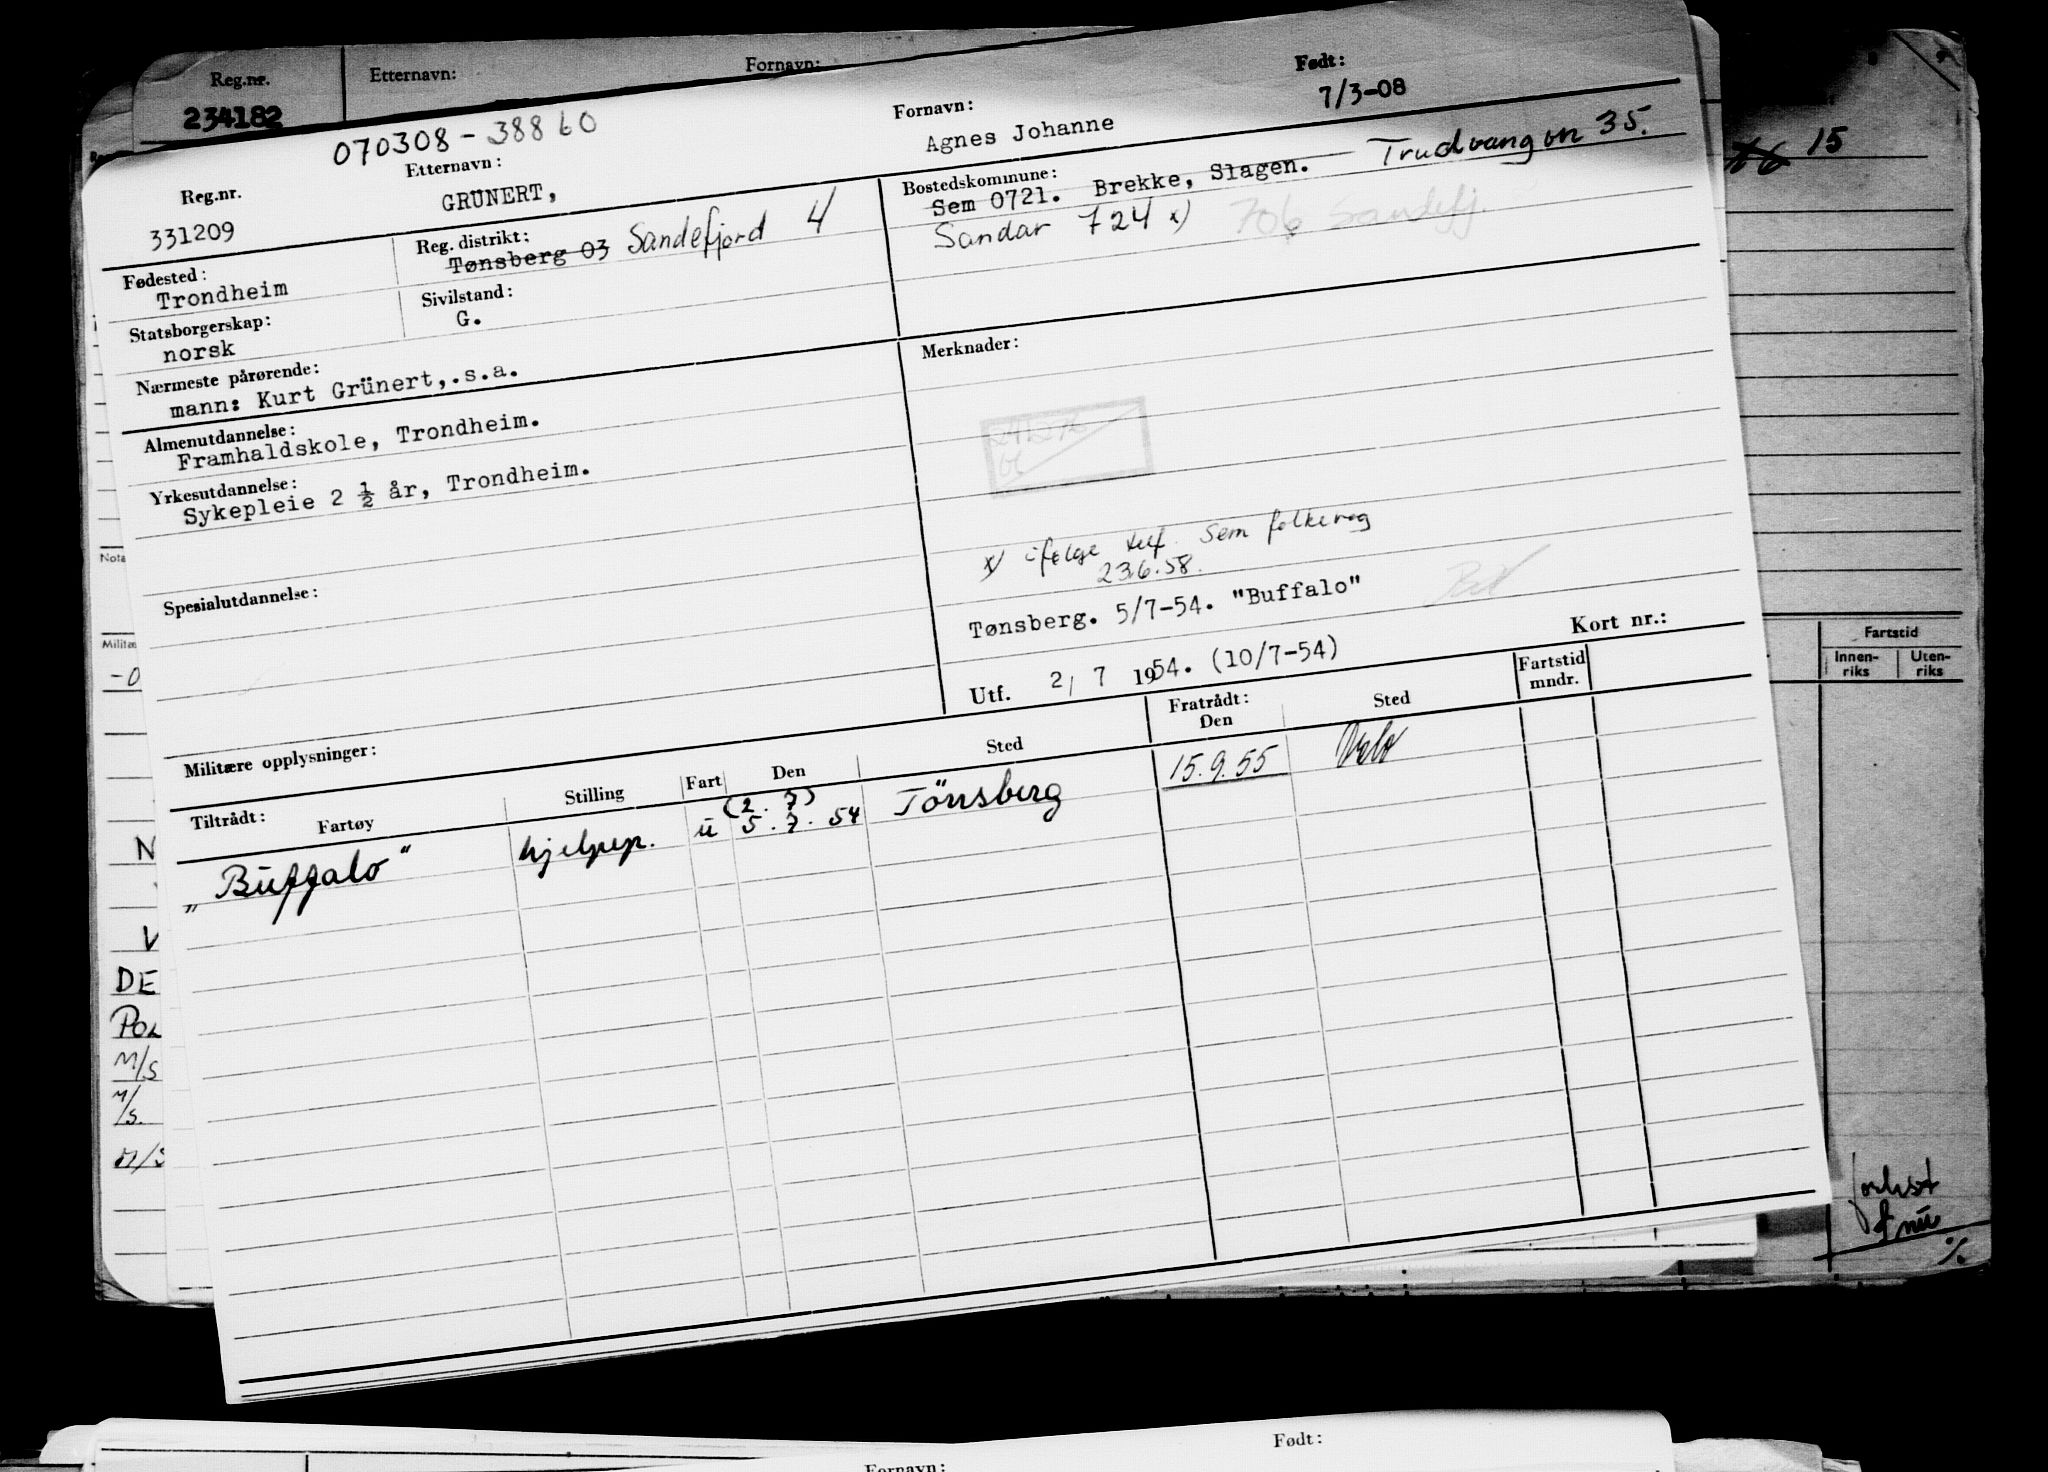 Reg.nr. Etternavn: Fornavn:
234182
070308-38860
Reg.nr. Etternavn: Fornavn: Født:
331209 GRÜNERT, Agnes Johanne 7/3-08
Fødested: Reg. distrikt: Bostedskommune:
Trondheim Tønsberg 03 Sandefjord 4 Sem 0721. Brekke, Slagen. Trudvangvn 35.
Sandar 724 x) 706 Sandefj.
Statsborgerskap: Sivilstand:
norsk G.
Nærmeste pårørende: Merknader:
mann: Kurt Grünert,.s.a.
Almenutdannelse:
Framhaldskole, Trondheim.
Yrkesutdannelse:
Sykepleie 2 ½ år, Trondheim.
x) ifølge tlf. Sem folkereg
23.6.58.
Spesialutdannelse:
Tønsberg. 5/7-54. "Buffalo"
Utf. 2/ 7 1954. (10/7-54) Kort nr.:
Militære opplysninger:
Tiltrådt: Fartøy Stilling Fart Den Sted Fratrådt: Den Sted Fartstid mndr.
(2. 7)
„Buffalo" hjelpep. u 5. 7. 54 Tönsberg 15.9.55 Oslo
15
Fartstid
Innen-riks Uten-riks
Nota
Militæ
-0
N
V
DE
POL
M/S
M/S.
M/S
Født:
Fornavn: